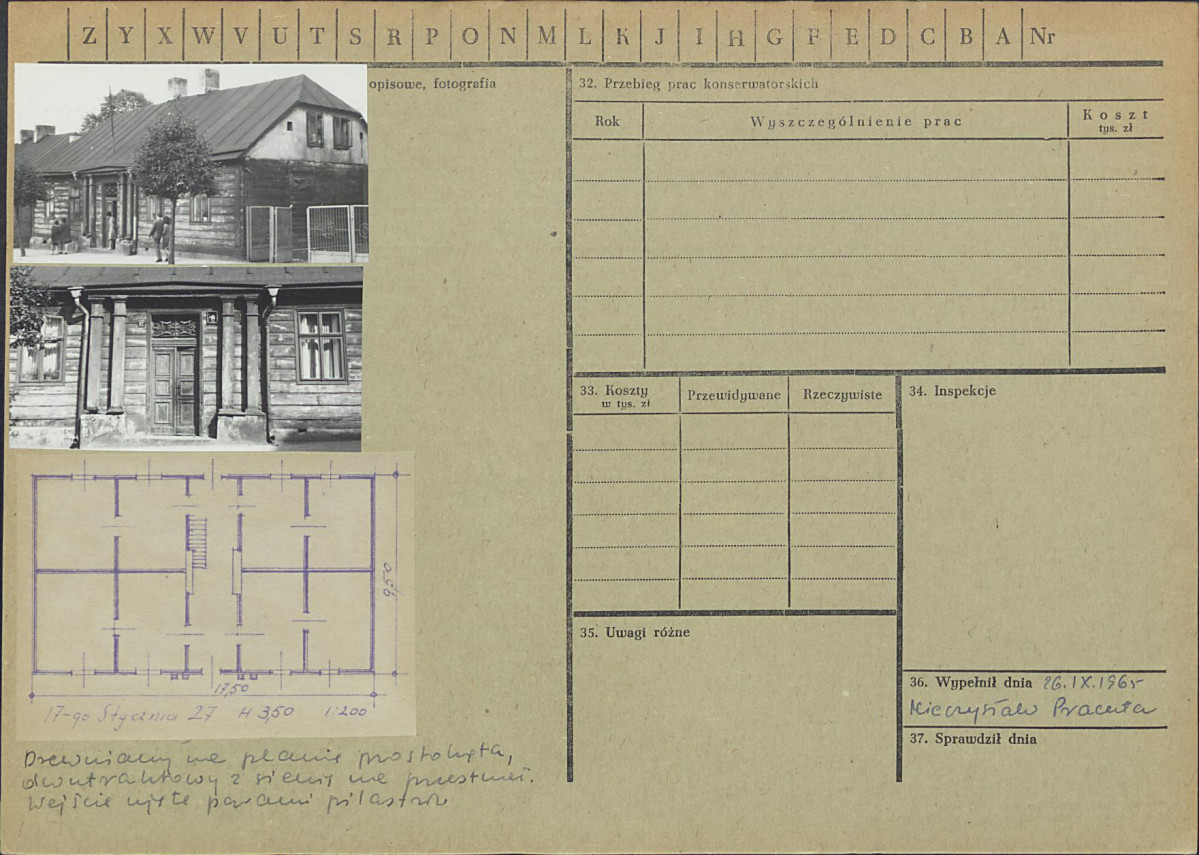 Z Y X W V U T S R P O N M L K J I H G F E D C B A Nr
opisowe, fotografia
32. Przebieg prac konserwatorskich
Rok
Wyszczególnienie prac
Koszt
tys. zł
33. Koszty
w tys. zł
Przewidywane
Rzeczywiste
34. Inspekcje
35. Uwagi różne
36. Wypełnił dnia 26.IX.1965
Mieczysław
37. Sprawdził dnia
17,50
17-go Stycznia 27 H 3,50 1:200
Drewniany na planie prostokąta,
dwutraktowy z sienią na przestrzał.
Wejście ujęte parami pilastrów